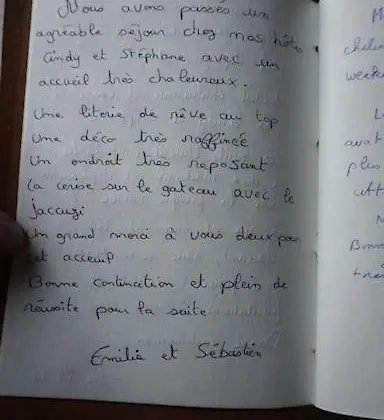 Nous avons passés un
agréable séjour chez mos hôtes
Cindy et Stéphane avec un
accueil très chaleureux.
Une literie de rêve au top
Une déco très raffinée
Un endroit très reposant
La cerise sur le gateau avec le
jaccuzi
Un grand merci à vous deux pour
cet accueil
Bonne continuation et plein de
réussite pour la suite
Emilie et Sébastien